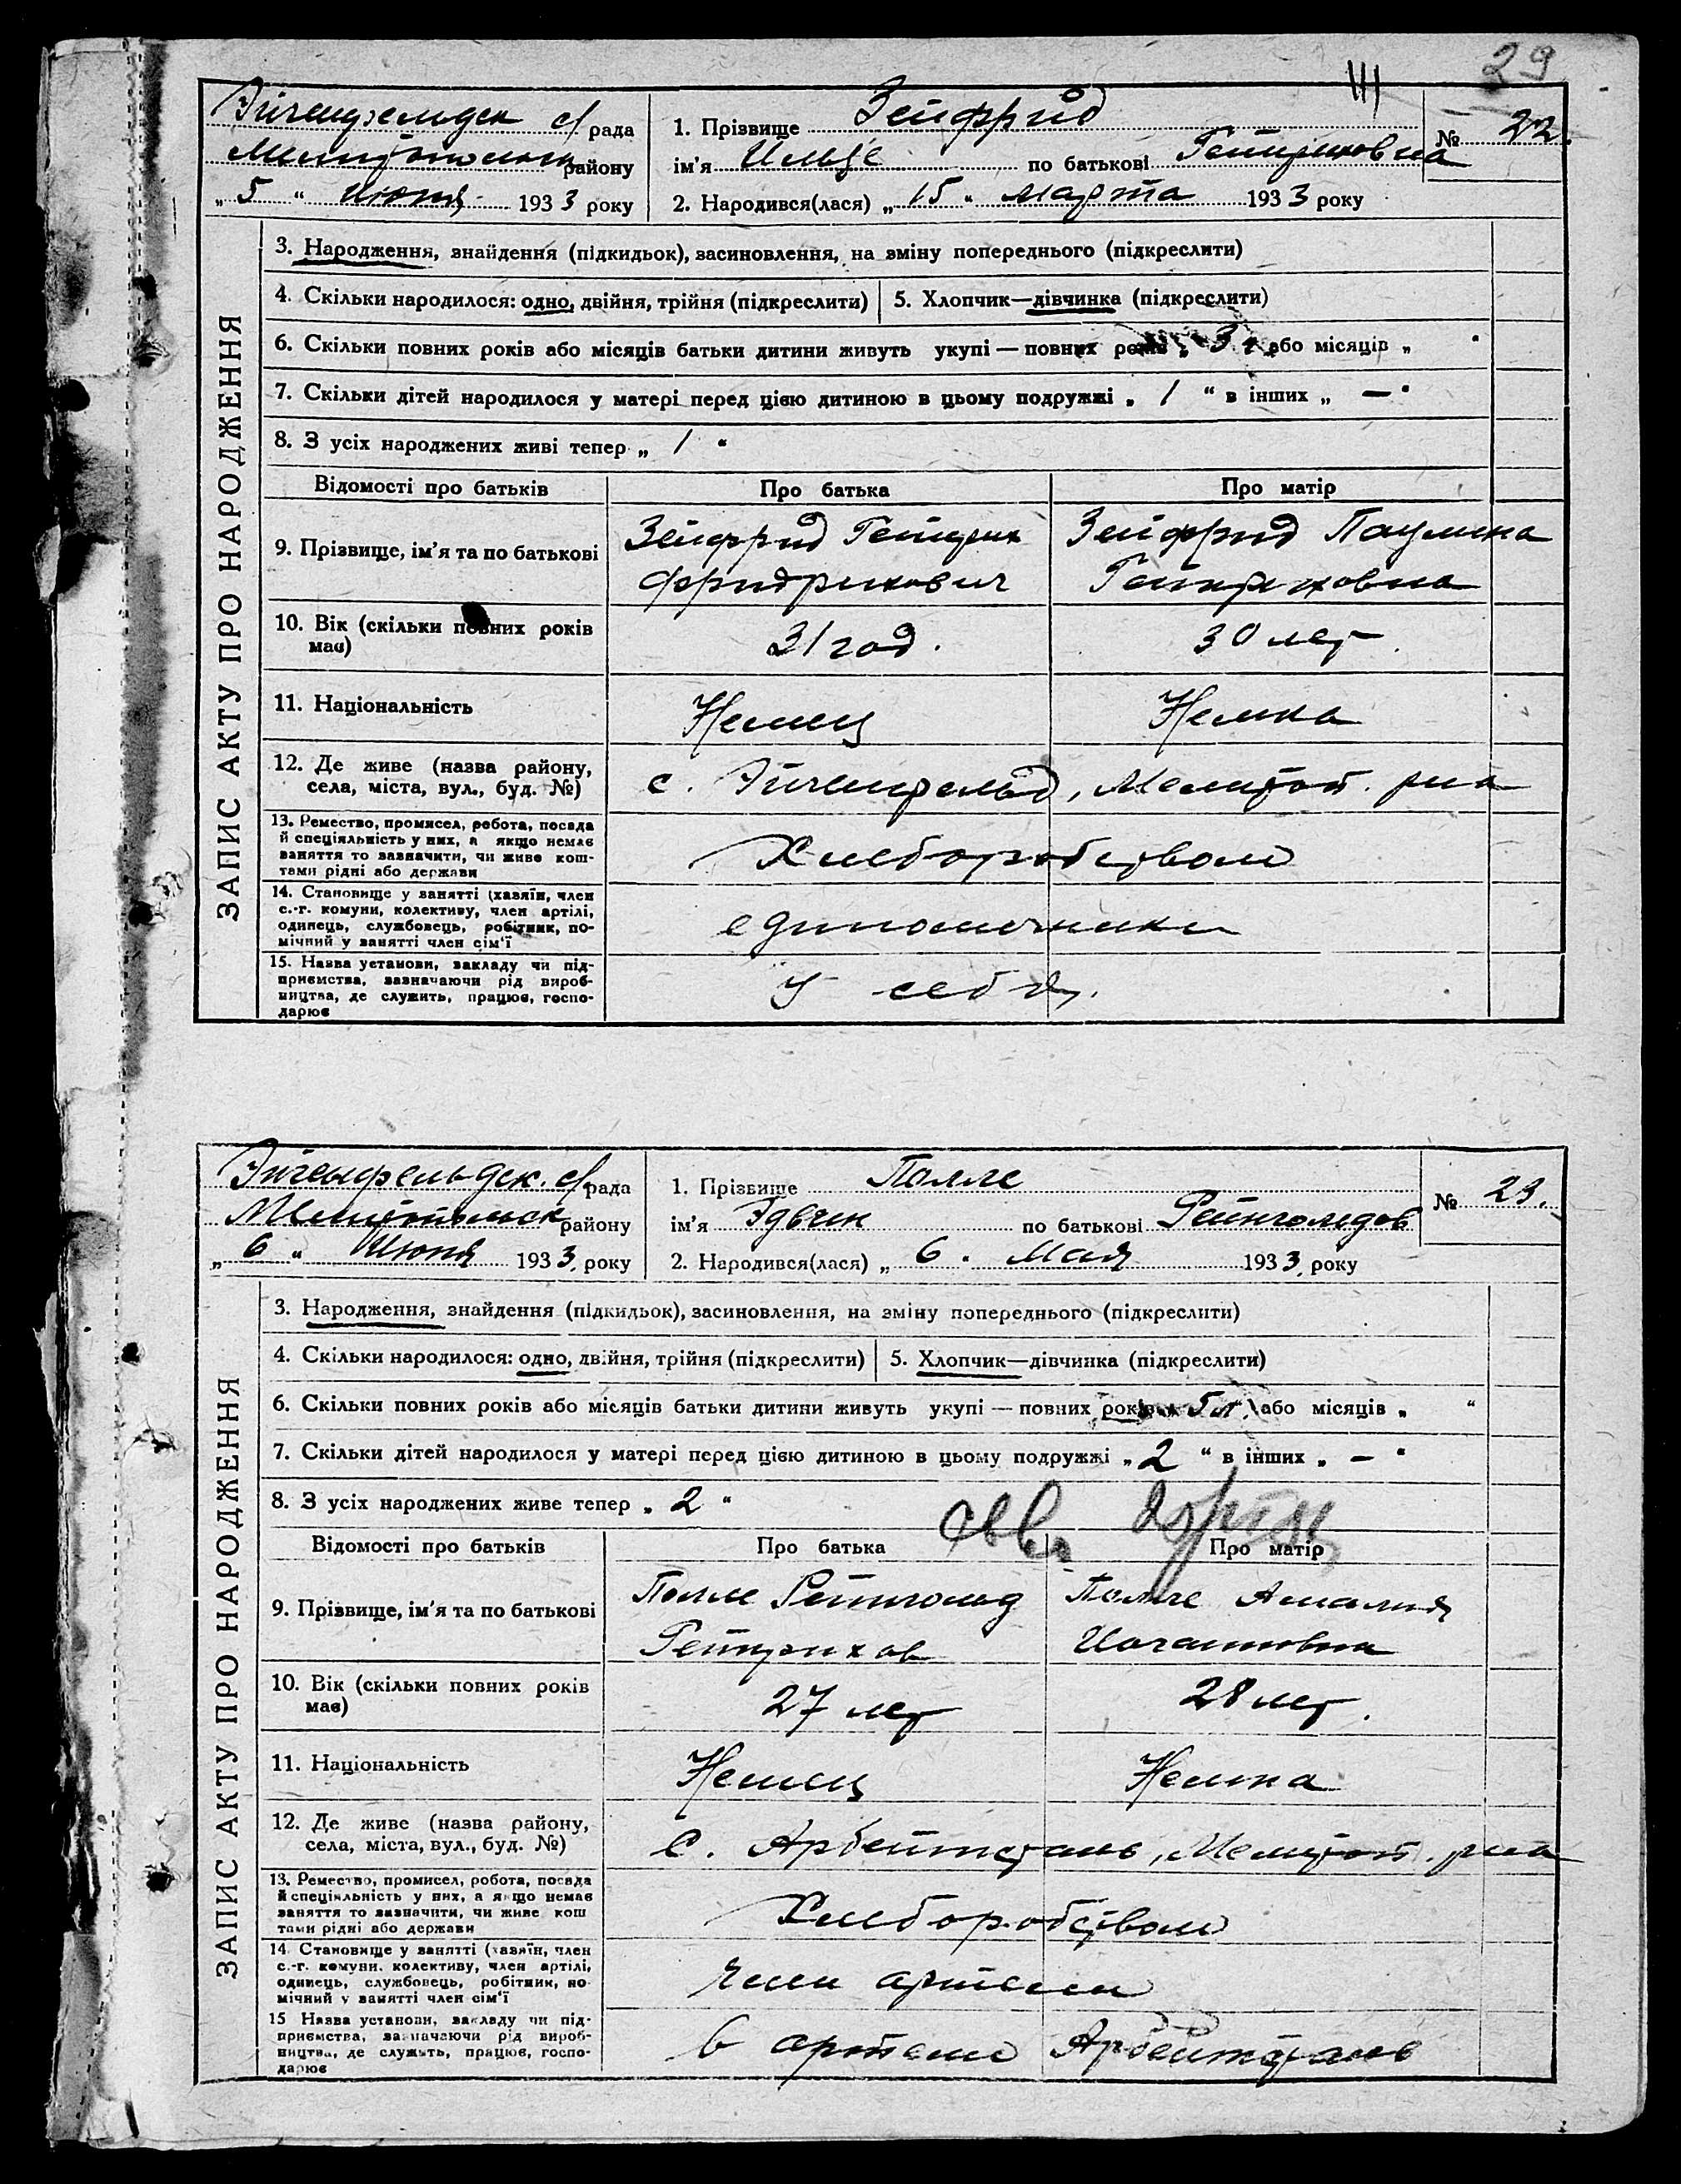 29
Эйгенфельдск с/ рада
Мелитопольск району
„ 5 “ Июня 1933 року
1. Прізвище Зейфрид
№ 22.
ім'я Ильзе по батькові Генриховна
2. Народився(лася) „ 15 “ Марта 1933 року
ЗАПИС АКТУ ПРО НАРОДЖЕННЯ
3. Народження, знайдення (підкидьок), засиновлення, на зміну попереднього (підкреслити)
4. Скільки народилося: одно, двійня, трійня (підкреслити) 5. Хлопчик—дівчинка (підкреслити)
6. Скільки повних років або місяців батьки дитини живуть укупі — повних років „ 3 “ або місяців „ “
7. Скільки дітей народилося у матері перед цією дитиною в цьому подружжі „ 1 “ в інших „ — “
8. З усіх народжених живі тепер „ 1 “
Відомості про батьків Про батька Про матір
9. Прізвище, ім'я та по батькові
Зейфрид Генрих
Фридрихович
Зейфрид Паулина
Генриховна
10. Вік (скільки повних років
має)
31 год.
30 лет.
11. Національність
Немец
Немка
12. Де живе (назва району,
села, міста, вул., буд. №)
с. Эйгенфельд, Мелитоп. р-на
13. Ремество, промисел, робота, посада
й спеціяльність у них, а якщо немає
заняття то зазначити, чи живе кош-
тами рідні або держави
Хлеборобством
14. Становище у занятті (хазяїн, член
с.-г. комуни, колективу, член артілі,
одинець, службовець, робітник, по-
мічний у занятті член сім'ї
единоличники
15. Назва установи, закладу чи під-
приємства, зазначаючи рід вироб-
ництва, де служить, працює, госпо-
дарює
У себя.
Эйгенфельдск. с/. рада
Мелитопольск району
„ 6 “ Июня 1933 року
1. Прізвище Полле
№ 23.
ім'я Эдвин по батькові Рейнгольдов
2. Народився(лася) „ 6 “ Мая 1933 року
ЗАПИС АКТУ ПРО НАРОДЖЕННЯ
3. Народження, знайдення (підкидьок), засиновлення, на зміну попереднього (підкреслити)
4. Скільки народилося: одно, двійня, трійня (підкреслити) 5. Хлопчик—дівчинка (підкреслити)
6. Скільки повних років або місяців батьки дитини живуть укупі — повних років „ 5 л. або місяців „ “
7. Скільки дітей народилося у матері перед цією дитиною в цьому подружжі „ 2 “ в інших „ — “
8. З усіх народжених живе тепер „ 2 “
Відомості про батьків Про батька Про матір
9. Прізвище, ім'я та по батькові
Полле Рейнгольд
Генрихов
Полле Амалия
Иогановна
10. Вік (скільки повних років
має)
27 лет
28 лет.
11. Національність
Немец
Немка
12. Де живе (назва району,
села, міста, вул., буд. №)
с. Арбейтсталь, Мелитоп. р-на
13. Ремество, промисел, робота, посада
й спеціяльність у них, а якщо немає
заняття то зазначити, чи живе кош
тами рідні або держави
Хлеборобством
14 Становище у занятті (хазяїн, член
с.-г. комуни, колективу, член артілі,
одинець, службовець, робітник, по-
мічний у занятті член сім'ї
член артели
15 Назва установи, закладу чи під-
приємства, зазначаючи рід вироб-
ництва, де служить, працює, госпо-
дарює
в артели Арбейтсталь